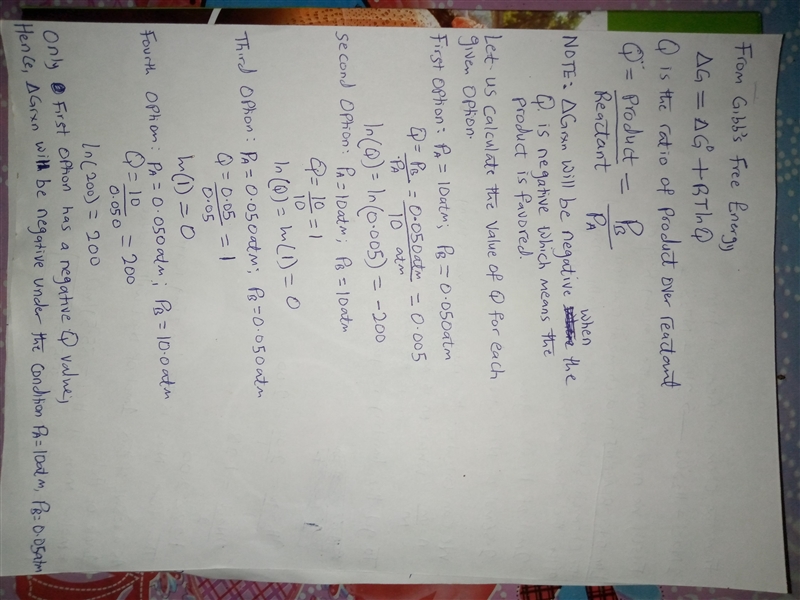 From Gibb's Free Energy
ΔG = ΔG° + RT ln Q
Q is the ratio of product over reactant
Q = Product / Reactant = PB / PA
NOTE: ΔGrxn will be negative when the
Q is negative which means the
product is favored
Let us calculate the value of Q for each
given option.
First option: PA = 10atm; PB = 0.050atm
Q = PB / PA = 0.050atm / 10 atm = 0.005
ln(Q) = ln(0.005) = -200
second option: PA = 10atm; PB = 10atm
Q = 10 / 10 = 1
ln(Q) = ln(1) = 0
Third option: PA = 0.050atm; PB = 0.050atm
Q = 0.05 / 0.05 = 1
ln(1) = 0
Fourth option: PA = 0.050atm; PB = 10.0atm
Q = 10 / 0.050 = 200
ln(200) = 200
Only First option has a negative Q value;
Hence, ΔGrxn will be negative under the condition PA = 10atm, PB = 0.05atm